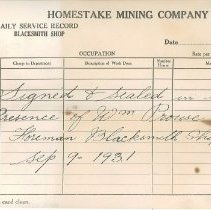 HOMESTAKE MINING COMPANY
AILY SERVICE RECORD
BLACKSMITH SHOP
Date
OCCUPATION
Rate per
Charge to Department
Description of Work Done
Number Hours
Signed & Sealed in
Presence of Wm Prowse
Foreman Blacksmith Sho
Sep 9 - 1931
card clean.